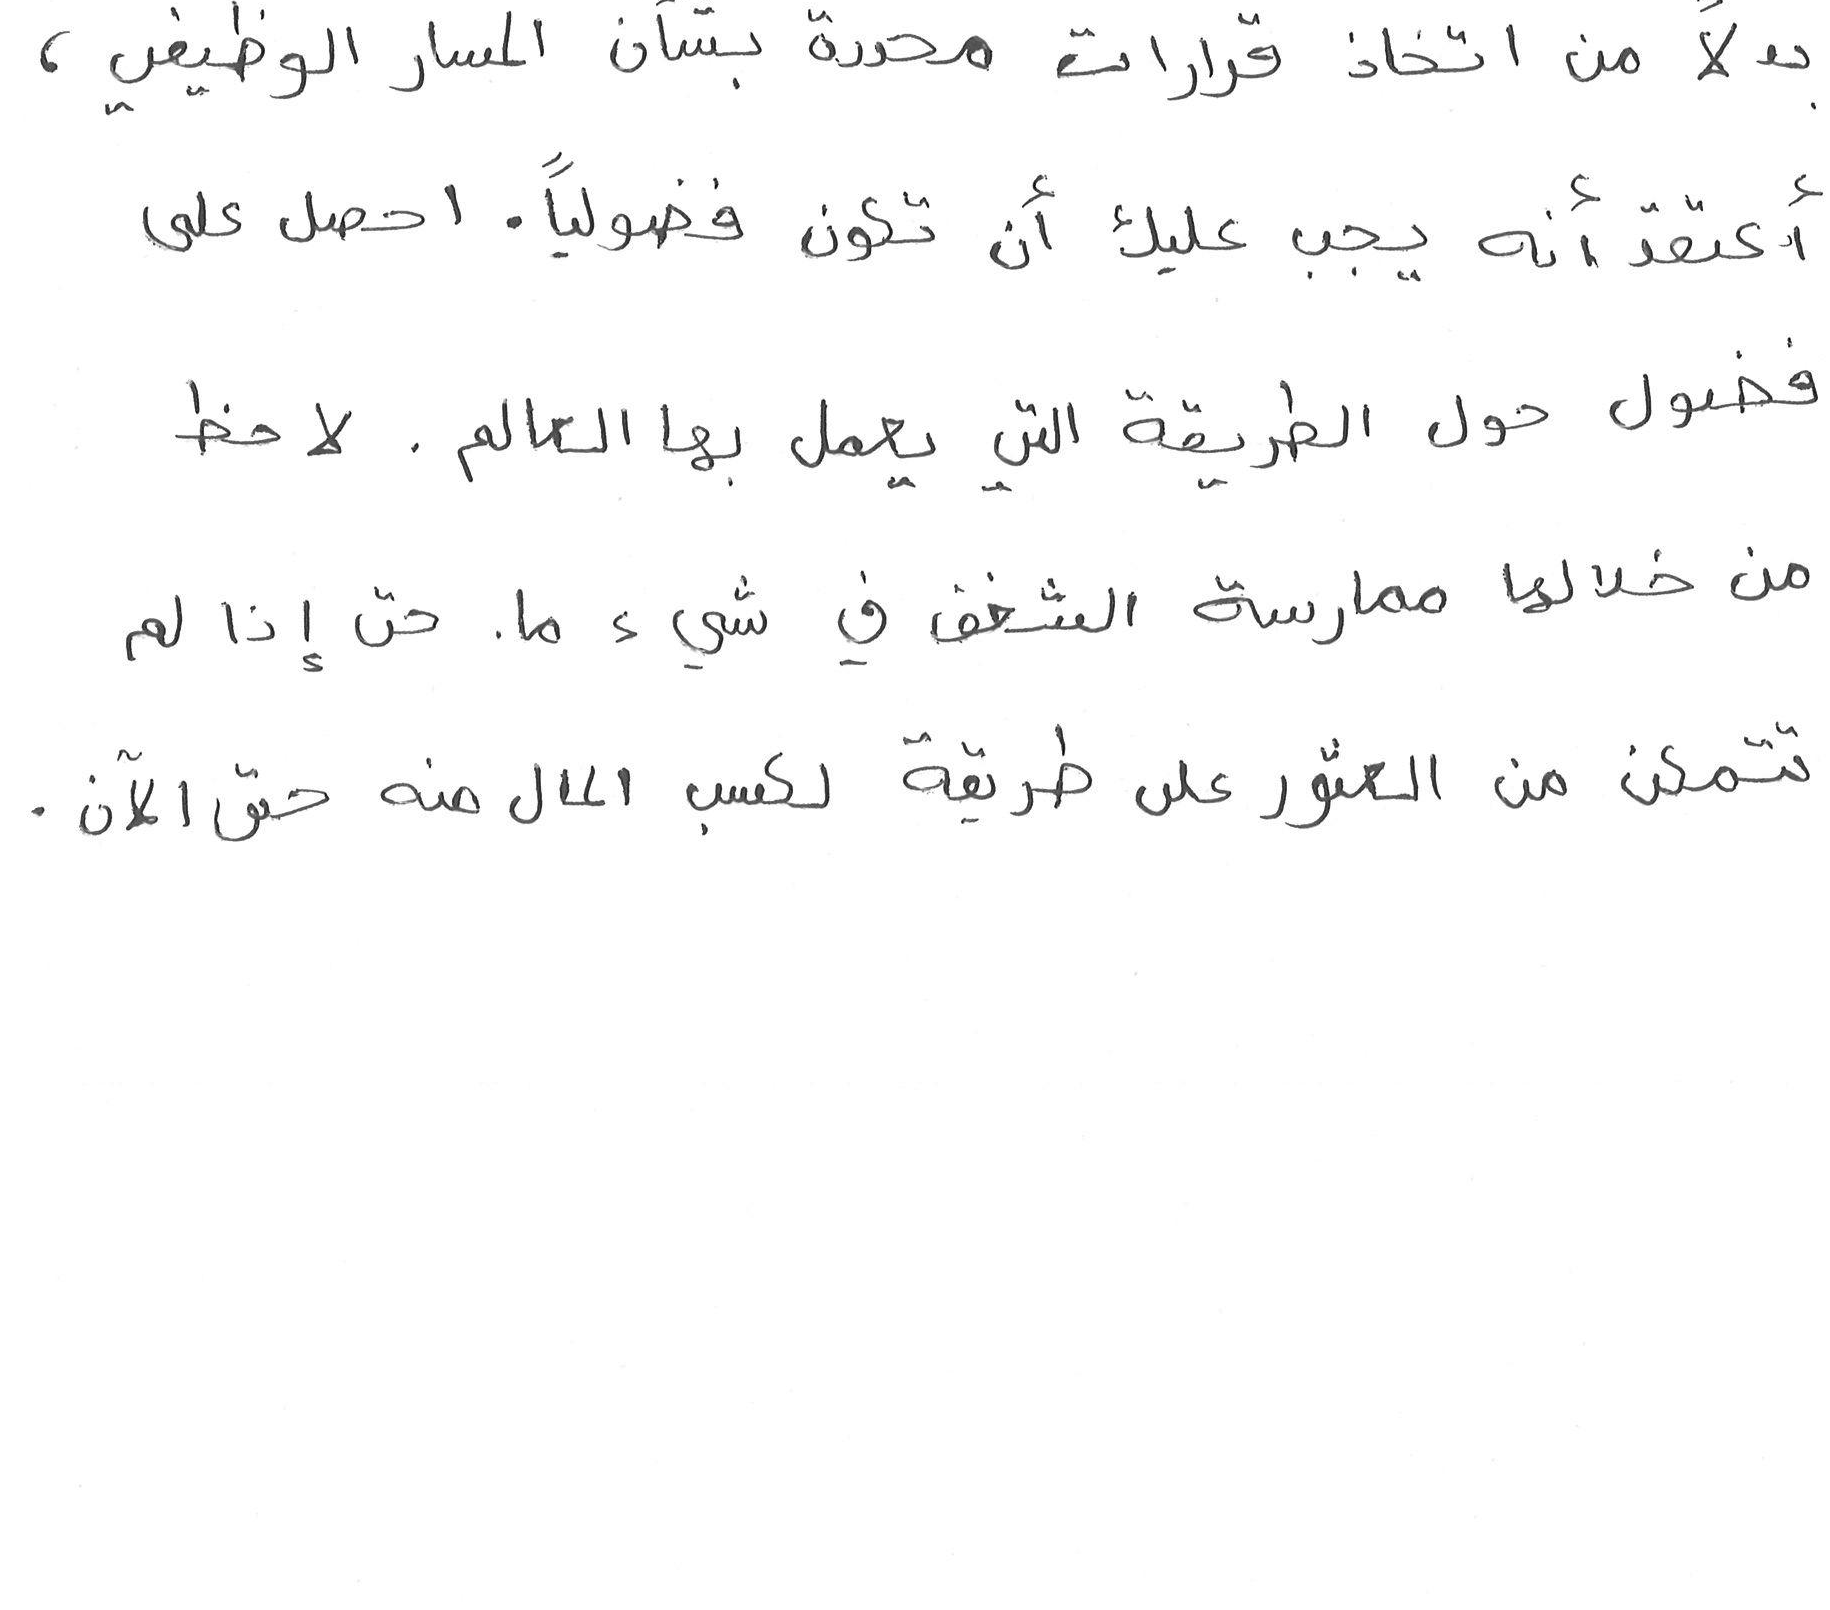 بدلاً من اتخاذ قرارات محددة بشأن المسار الوظيفي ،
أعتقد أنه يجب عليك أن تكون فضولياً. احصل على
فضول حول الطريقة التي يعمل بها العالم . لاحظ
من خلالها ممارسة الشغف في شيء ما. حتى إذا لم
تتمكن من العثور على طريقة لكسب المال منه حتى الآن .